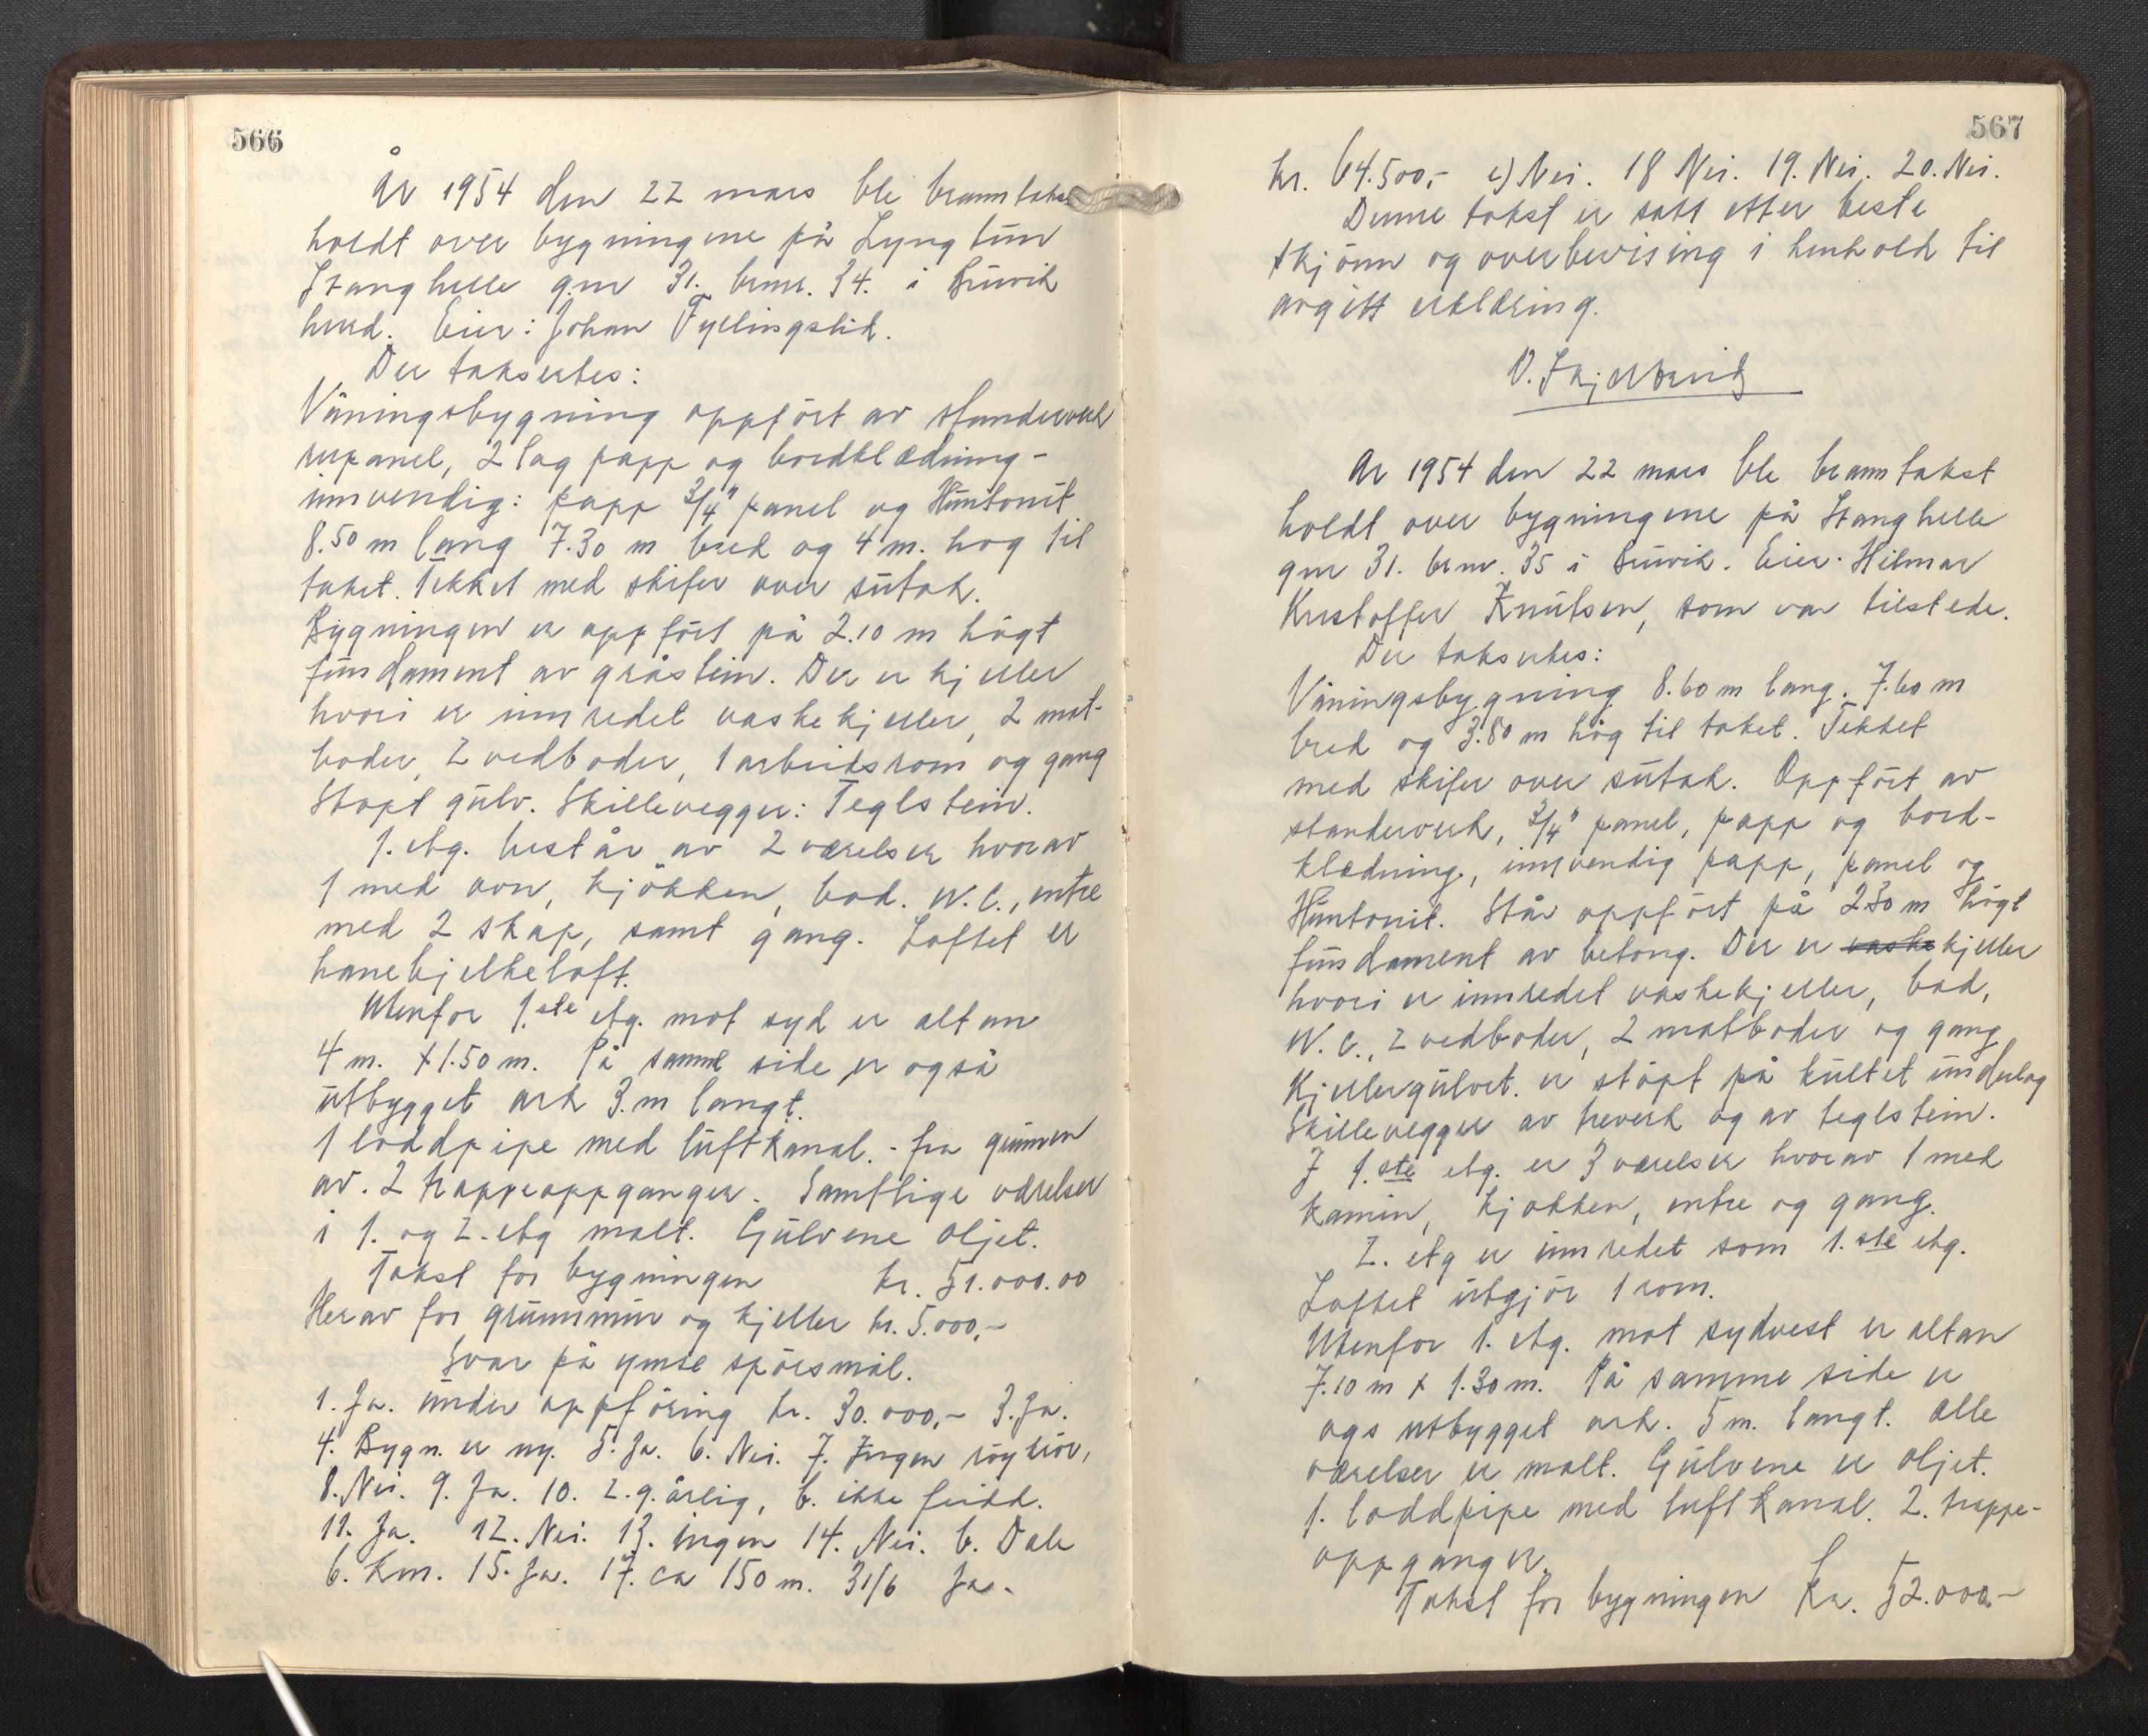 566
År 1954 den 22 mars ble branntakst
holdt over bygningene på Lyngtun
Stanghelle gnr 31. brnr. 34. i Bruvik
herred. Eier: Johan Fyllingslid.
Der takseres:
Våningsbygning oppfört av standerverk
rupanel, 2 lag papp og bordklædning-
innvendig: papp 3/4" panel og Huntonit
8.50 m lang 7.30 m bred og 4 m. hög til
taket. Tekket med skifer over sutak.
Bygningen er oppfört på 2.10 m högt
fundament av gråstein. Der er kjeller
hvori er innredet vaskekjeller, 2 mat-
boder, 2 vedboder, 1 arbeidsrom og gang
Stöpt gulv. Skillevegger: Teglstein.
1. etg. består av 2 værelser hvorav
1 med ovn, kjökken, bad. W.C., entre
med 2 skap, samt gang. Loftet er
hanebjelkeloft.
Utenfor 1.ste etg. mot syd er altan
4 m. x 1.50 m. På samme side er også
utbygget ark 3.m langt.
1 loddpipe med luftkanal. - fra grunnen
av. 2 trappeoppganger. Samtlige værelser
i 1. og 2. etg malt. Gulvene oljet.
Takst for bygningen kr. 51.000.00
Herav for grunnmur og kjeller kr. 5.000,-
Svar på ymse spörsmål.
1. Ja. under oppföring kr. 30.000,- 3. Ja.
4. Bygn. er ny. 5. Ja. 6. Nei. 7. Ingen röykrör,
8. Nei. 9. Ja. 10. 2.g. årlig, b. ikke feiedd.
11. Ja. 12. Nei. 13. ingen 14. Nei. b. Dale
6. Km. 15. Ja. 17. ca 150 m. 31/6 Ja.
567
kr. 64.500,- c) Nei. 18 Nei. 19. Nei. 20. Nei.
Denne takst er satt etter beste
skjönn og overbevising i henhold til
avgitt erklæring.
År 1954 den 22 mars ble branntakst
holdt over bygningene på Stanghelle
gnr 31. brnr. 35 i Bruvik. Eier: Hilmar
Kristoffer Knutsen, som var tilstede.
Der takseres:
Våningsbygning 8.60 m lang. 7.60 m
bred og 3.80 m hög til taket. Tekket
med skifer over sutak. Oppfört av
standerverk, 3/4" panel, papp og bord-
klædning, innvendig papp, panel og
Huntonit. Står oppfört på 2.30 m högt
fundament av betong. Der er vaske kjeller
hvori er innredet vaskekjeller, bad,
W.C., 2 vedboder, 2 matboder og gang
Kjellergulvet. er stöpt på kultet underlag
Skillevegger av treverk og av teglstein.
I 1.ste etg. er 3 værelser hvorav 1 med
kamin, kjökken, entre og gang.
2. etg er innredet som 1.ste etg.
Loftet utgjör 1 rom.
Utenfor 1. etg. mot sydvest er altan
7.10 m x 1.30 m. På samme side er
ogs utbygget ark. 5 m. langt. Alle
værelser er malt. Gulvene er oljet.
1. loddpipe med luftkanal. 2. trappe-
oppganger.
Takst for bygningen Kr. 52.000.-